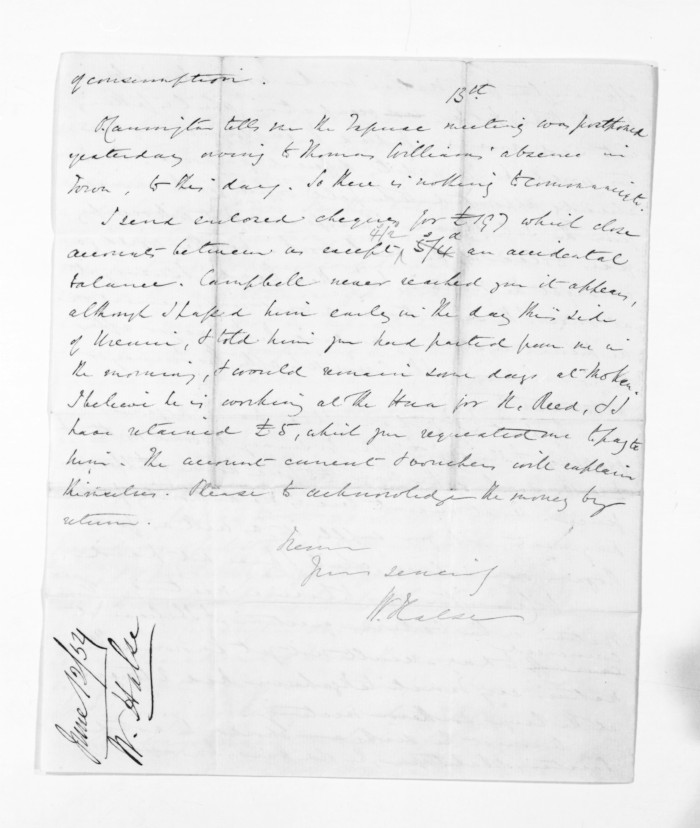 of consumption.
13th
Mannington tells me the Tapuae meeting was postponed
yesterday owing to Thomas Williams' absence in
Town, to this day. So there is nothing to communicate.
I send enclosed cheques for £197 which close
accounts between us except 4/2 5s/4d an accidental
balance. Campbell never reached you it appears,
although I passed him early in the day this side
of Urenui, & told him you had parted from me in
the morning, & would remain some days at Mokau.
I believe he is working at the Hua for Mr. Reed, & I
have retained £5, which you requested me to pay to
him. The account current & vouchers will explain
themselves. Please to acknowledge the money by
return.
Yours sincerely
W. Halse
June 13/54
W. Halse